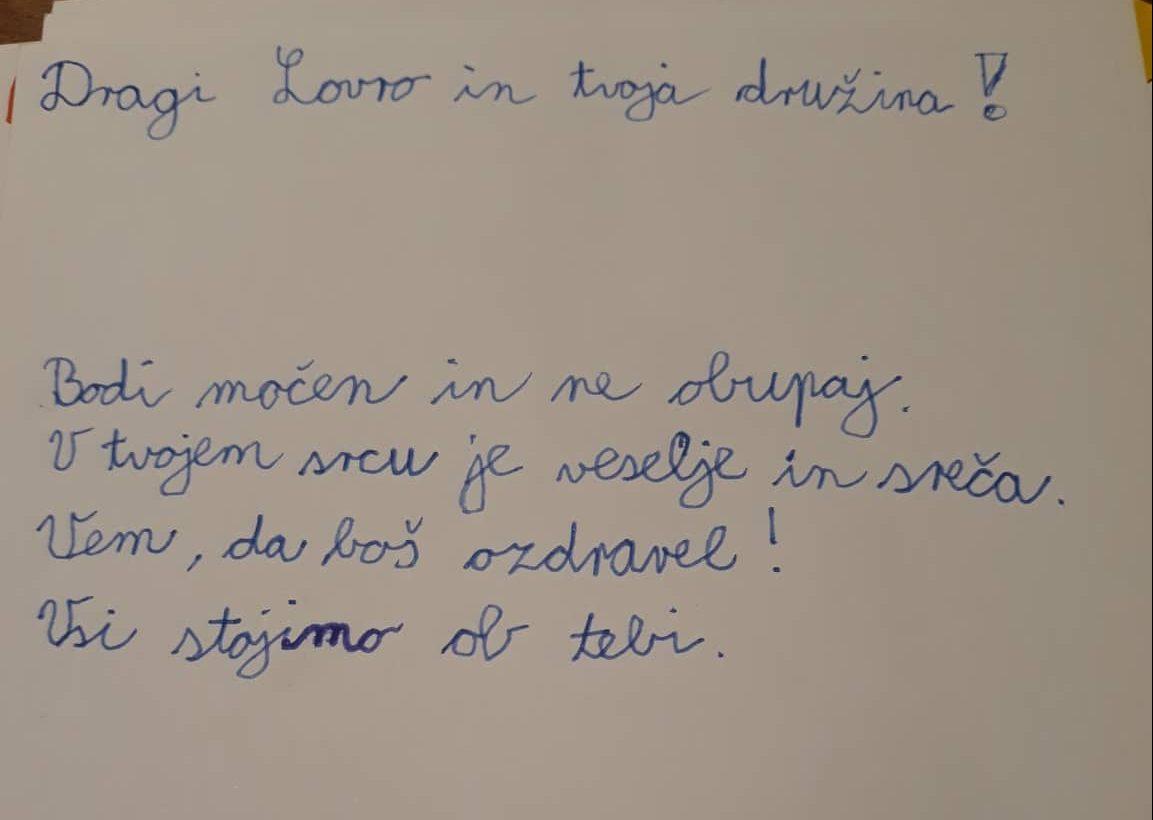 Dragi Lovro in tvoja družina!
Bodi močen in ne obupaj.
V tvojem srcu je veselje in sreča.
Vem, da boš ozdravel!
Vsi stojimo ob tebi.